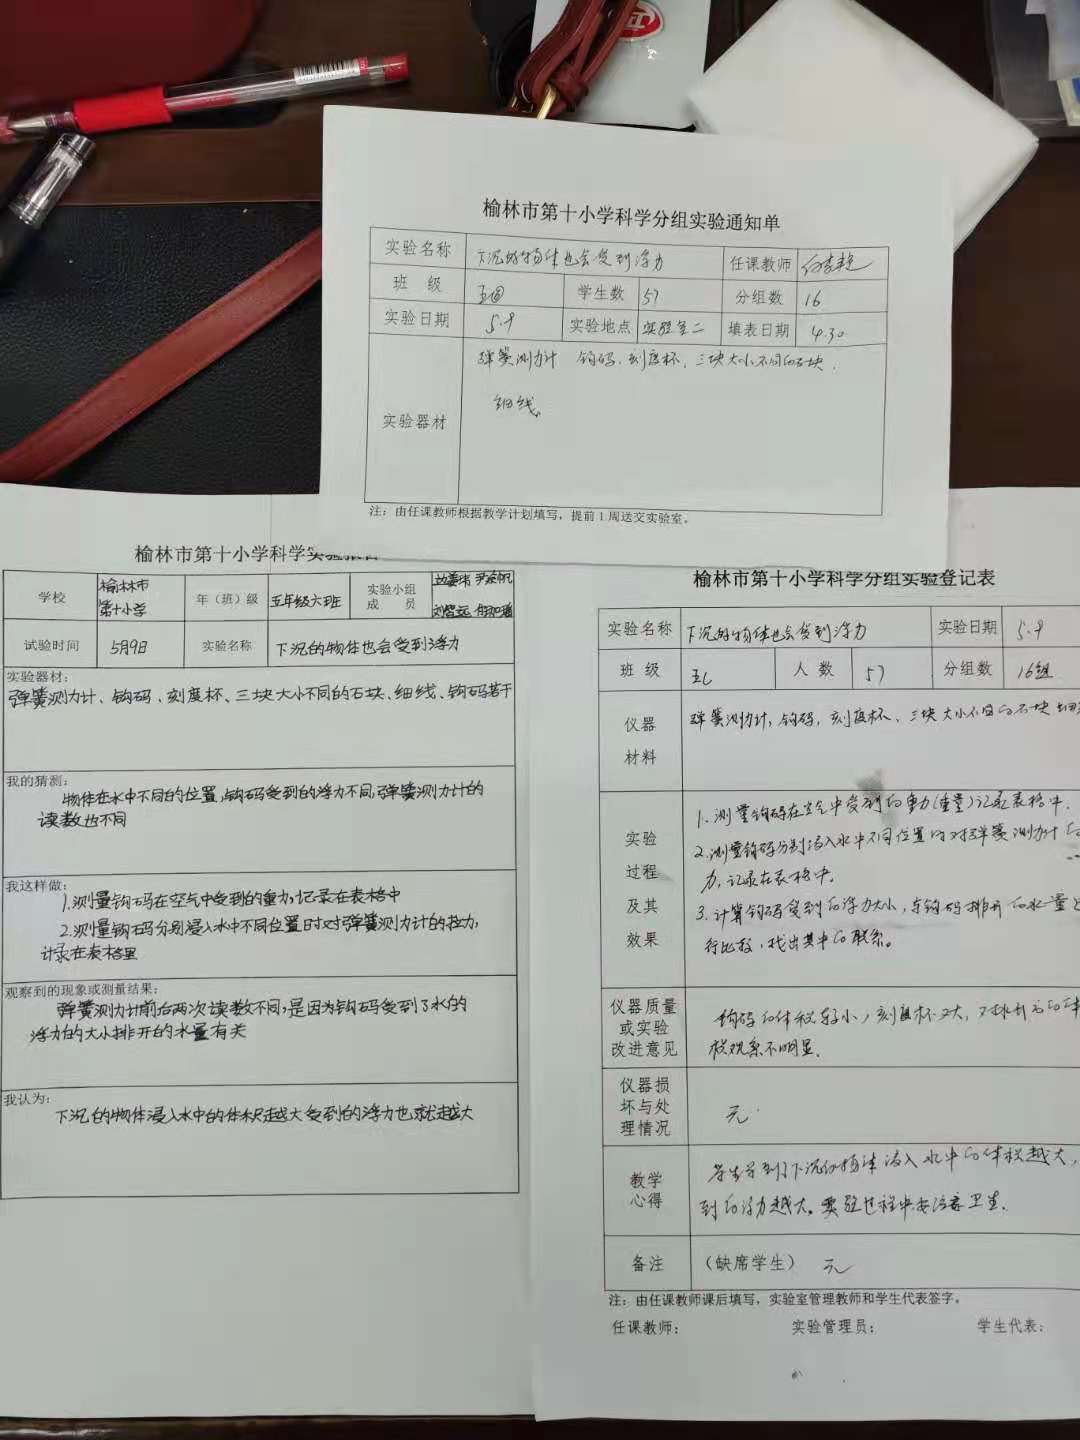 榆林市第十小学科学分组实验通知单
实验名称 下沉的物体也会受到浮力 任课教师
班 级 五四 学生数 57 分组数 16
实验日期 5.9 实验地点 实验室二 填表日期 4.30
弹簧测力计 钩码、刻度杯、三块大小不同的石块、
细线
实验器材
注：由任课教师根据教学计划填写，提前1周送交实验室。
榆林市第十小学科学实验报告
学校 榆林市第十小学 年（班）级 五年级六班 实验小组成 员
试验时间 5月9日 实验名称 下沉的物体也会受到浮力
实验器材：
弹簧测力计、钩码、刻度杯、三块大小不同的石块、细线、钩码若干
我的猜测：
物体在水中不同的位置,钩码受到的浮力不同,弹簧测力计的
读数也不同
我这样做：
1.测量钩码在空气中受到的重力,记录在表格中
2.测量钩码分别浸入水中不同位置时对弹簧测力计的拉力,
计录在表格里
观察到的现象或测量结果：
弹簧测力计前后两次读数不同,是因为钩码受到了水的
浮力的大小排开的水量有关
我认为：
下沉的物体浸入水中的体积越大受到的浮力也就越大
榆林市第十小学科学分组实验登记表
实验名称 下沉的物体也会受到浮力 实验日期 5.9
班 级 人 数 57 分组数 16组
仪器
材料
弹簧测力计，钩码，刻度杯、三块大小不同的石块
实验
过程
及其
效果
1.测量钩码在空气中受到的重力(重量)记录表格中.
2.测量钩码分别浸入水中不同位置时对弹簧测力计的
力,记录在表格中.
3.计算钩码受到的浮力大小,与钩码排开的水量
行比较,找出其中的联系。
仪器质量
或实验
改进意见
钩码的体积较小,刻度杯又大,
观察不明显.
仪器损
坏与处
理情况
无.
教学
心得
学生学到了下沉的物体浸入水中的体积越大,
到的浮力越大。实验过程中要注意卫生.
备注 （缺席学生） 无
注：由任课教师课后填写，实验室管理教师和学生代表签字。
任课教师： 实验管理员： 学生代表：